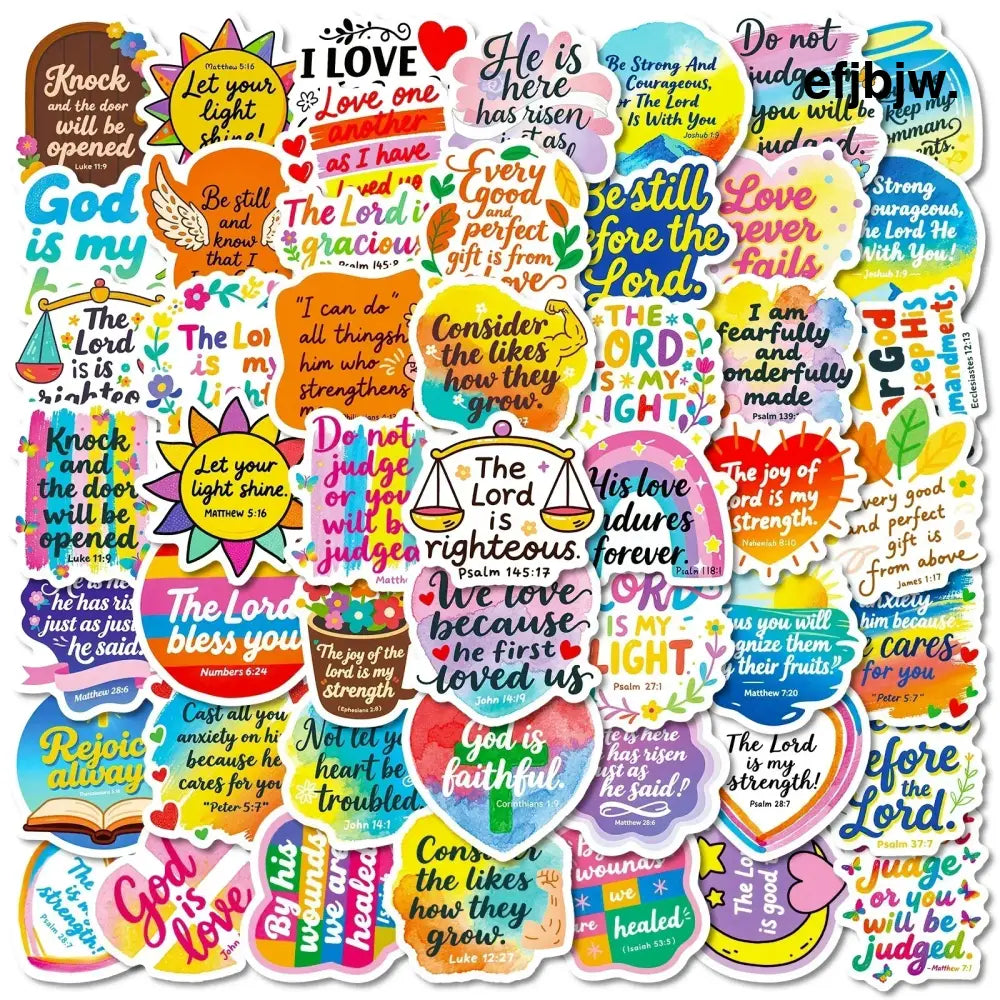 Knock
and the door
will be
opened
Luke 11:9
Matthew 5:16
Let your
light
shine!
I LOVE
Love one
another
as I have
loved
He is
here
has risen
just as
Be Strong And
Courageous,
or The Lord
Is With You
Joshub 1:9
Do not
judge
you will be
judged.
efjbjw.
keep my
omman
ents.
God
is my
Be still
and
know
that I
The Lord is
gracious
Psalm 145:8
Every
good
and
perfect
gift is from
Be still
efore the
Lord.
Love
never
fails
Strong
ourageous,
he Lord He
With You!
Joshub 1:9
The
Lord
is is
righteo
The Lor
is my
Light
"I can do"
all thingsh
him who
strengthens
Consider
the likes
how they
grow.
THE
LORD
IS MY
LIGHT.
I am
fearfully
and
onderfully
made
Psalm 139:
ar God
keep His
mmandments.
Ecclesiastes 12:13
Knock
and
the door
will be
opened
Luke 11:9
Let your
light shine.
MATTHEW 5:16
Do not
judge
or you
will b
judged
Matth
The
Lord
is
righteous.
Psalm 145:17
His love
ndures
forever.
Psalm 118:1
The joy of
ord is my
strength.
Nehemiah 8:10
very good
and perfect
gift is
from above
James 1:17
he has ris
just as just
he said.
Matthew 28:6
The Lord
bless you
Numbers 6:24
The joy of the
lord is my
strength
(Ephesians 2:8)
We love
because
he first
loved us
John 14:19
LORD
IS MY
LIGHT.
Psalm 27:1
us you will
ognize them
their fruits."
Matthew 7:20
anxiety
him because
e cares
for you
"Peter 5:7"
Rejoic
alway
Cast all you
anxiety on hi
because he
cares for you
"Peter 5:7"
Not let yo
heart be
troubled.
John 14:1
God is
faithful.
Corinthians 1:9
He is here
has risen
ust as
he said!
Matthew 28:6
The Lord
is my
strength!
Psalm 28:7
efore
the
Lord.
Psalm 37:7
The
is
strength!
Psalm 28:7
God
is
love
John
By his
wounds
we are
healed
Consider
the likes
how they
grow.
Luke 12:27
By
wounds
we
are
healed
(Isaiah 53:5)
The Lo
is good
judge
or you
will be
judged.
Matthew 7:1